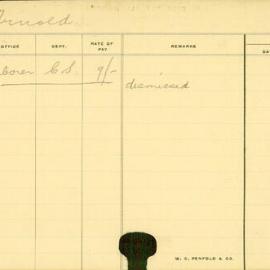 Arnold.
OFFICE DEPT. RATE OF PAY. REMARKS DA
borer C.S. 9/- dismissed
W. C. PENFOLD & CO.